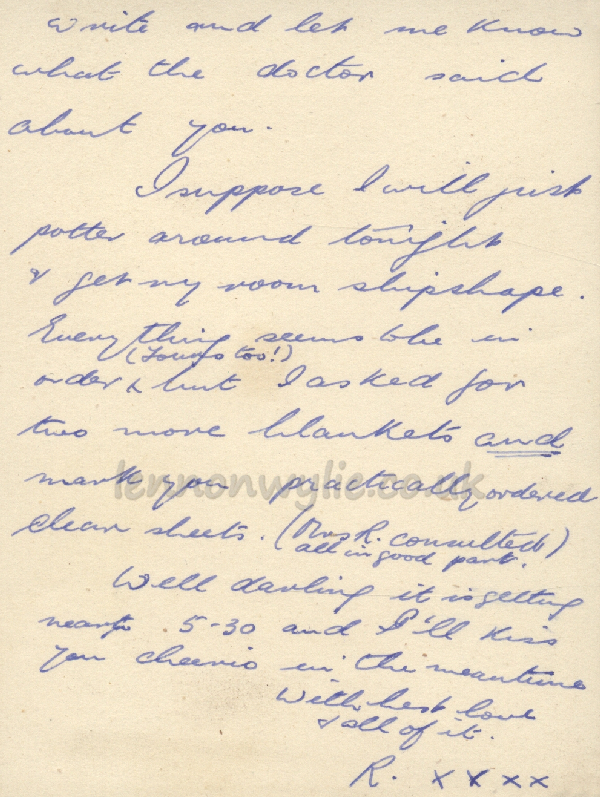 write and let me know
what the doctor said
about you.
I suppose I will just
potter around tonight
& get my room shipshape.
Everything seems to be in
(Yours too!)
order & but I asked for
two more blankets and
mark you practically ordered
lennonwylie.co.uk
clean sheets. (Mrs R. consulted)
all in good part.
Well darling it is getting
near 5-30 and I'll kiss
you cheerio in the meantime
With best love
& all of it.
R. x x x x